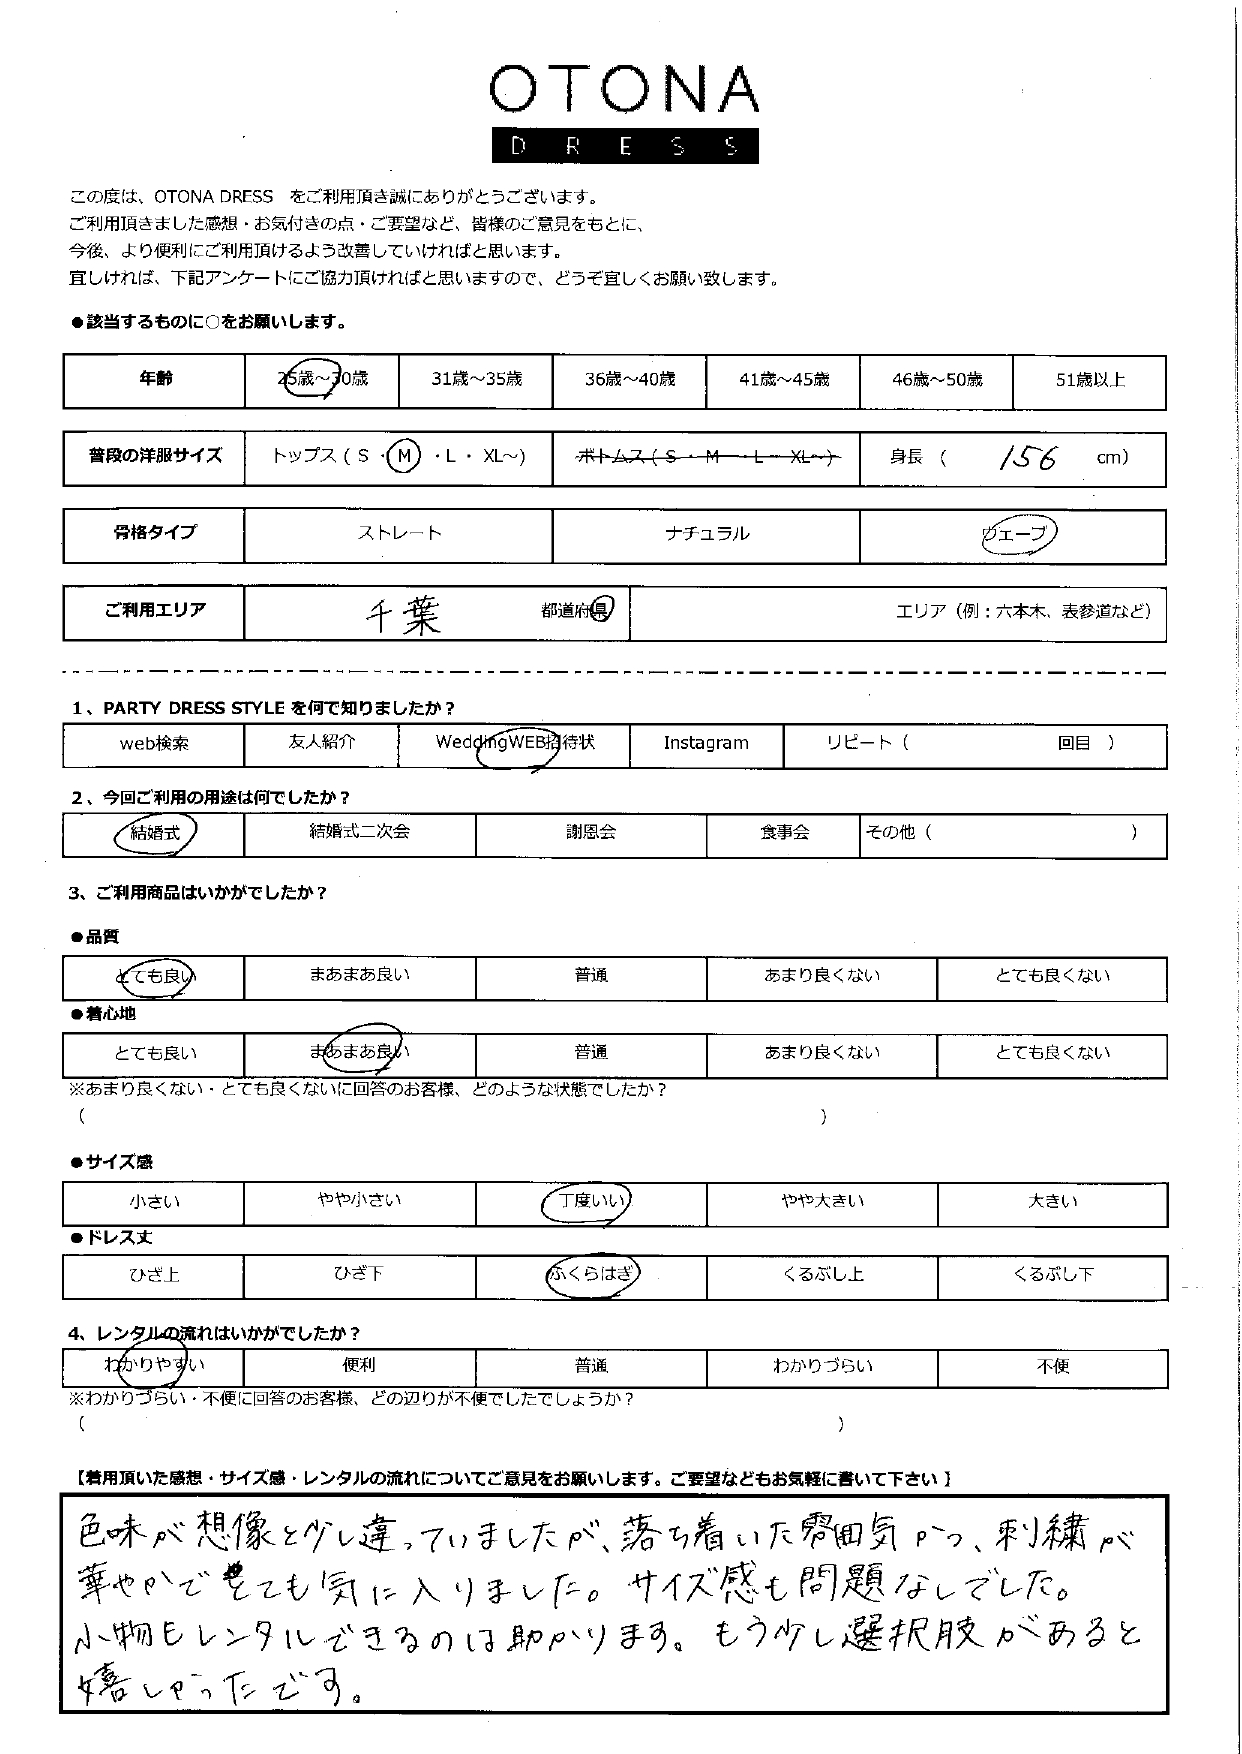 OTONA
DRESS
この度は、OTONA DRESS をご利用頂き誠にありがとうございます。
ご利用頂きました感想・お気付きの点・ご要望など、皆様のご意見をもとに、
今後、より便利にご利用頂けるよう改善していければと思います。
宜しければ、下記アンケートにご協力頂ければと思いますので、どうぞ宜しくお願い致します。
●該当するものに○をお願いします。
年齢 25歳～30歳 31歳～35歳 36歳～40歳 41歳～45歳 46歳～50歳 51歳以上
普段の洋服サイズ トップス ( S ・ M ・ L ・ XL～) ボトムス ( S ・ M ・ L ・ XL～) 身長 ( 156 cm)
骨格タイプ ストレート ナチュラル ウェーブ
ご利用エリア 千葉 都道府県 エリア（例：六本木、表参道など）
1、PARTY DRESS STYLE を何で知りましたか？
web検索 友人紹介 WeddingWEB招待状 Instagram リピート ( 回目 )
2、今回ご利用の用途は何でしたか？
結婚式 結婚式二次会 謝恩会 食事会 その他 ( )
3、ご利用商品はいかがでしたか？
●品質
とても良い まあまあ良い 普通 あまり良くない とても良くない
●着心地
とても良い まあまあ良い 普通 あまり良くない とても良くない
※あまり良くない・とても良くないに回答のお客様、どのような状態でしたか？
( )
●サイズ感
小さい やや小さい 丁度いい やや大きい 大きい
●ドレス丈
ひざ上 ひざ下 ふくらはぎ くるぶし上 くるぶし下
4、レンタルの流れはいかがでしたか？
わかりやすい 便利 普通 わかりづらい 不便
※わかりづらい・不便に回答のお客様、どの辺りが不便でしたでしょうか？
( )
【着用頂いた感想・サイズ感・レンタルの流れについてご意見をお願いします。ご要望などもお気軽に書いて下さい】
色味が想像と少し違っていましたが、落ち着いた雰囲気かつ、刺繍が
華やかでとても気に入りました。サイズ感も問題なしでした。
小物もレンタルできるのは助かります。もう少し選択肢があると
嬉しかったです。